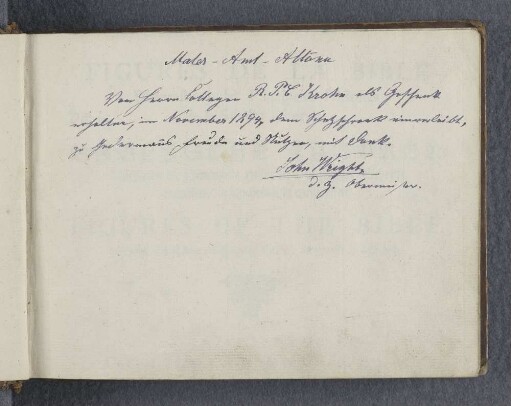 Maler-Amt-Altona
Von Herrn Collegen R. P. C Krohn als Geschenk
erhalten, im November 1894, dem Schatzschrank einverleibt,
zu Jedermanns Freude und Nutzen, mit Dank.
John Wright.
d. z. Obermeister.